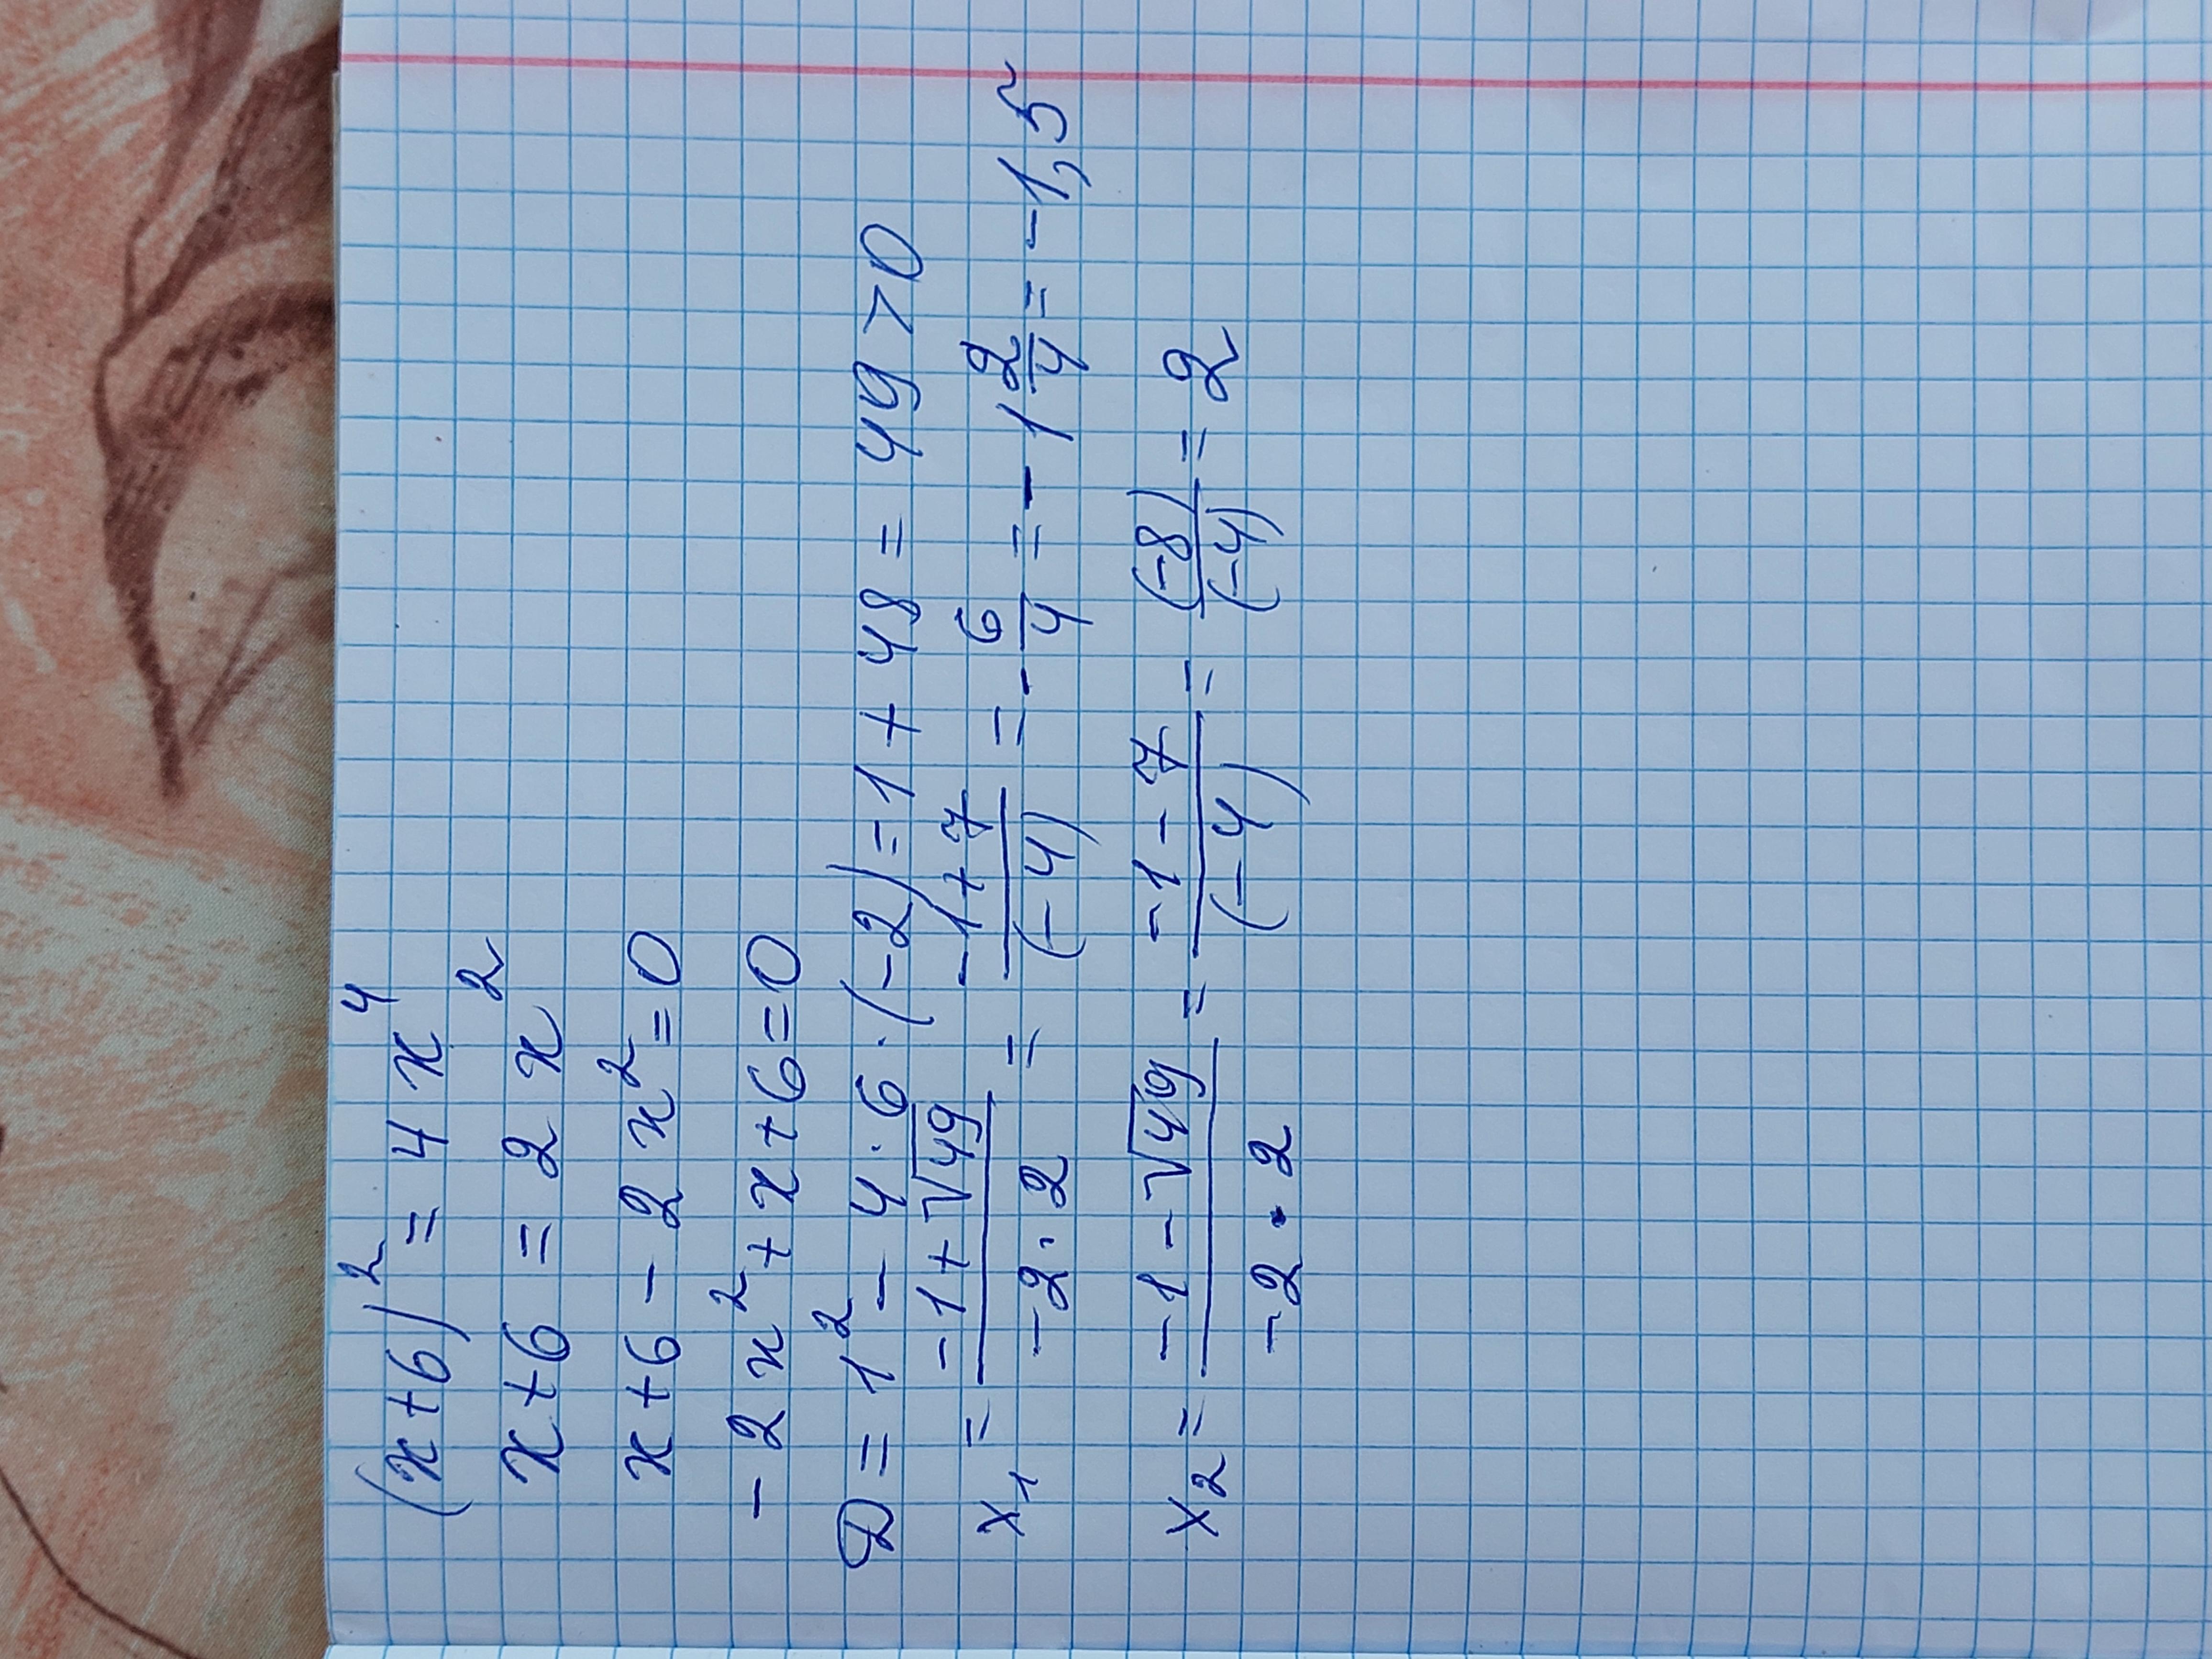 (x+6)² = 4x⁴
x+6 = 2x²
x+6 - 2x² = 0
-2x² + x + 6 = 0
D = 1² - 4·6·(-2) = 1 + 48 = 49 > 0
x₁ = (-1+√49)/(-2·2) = (-1+7)/(-4) = -6/4 = -1 2/4 = -1,5
x₂ = (-1-√49)/(-2·2) = (-1-7)/(-4) = (-8)/(-4) = 2